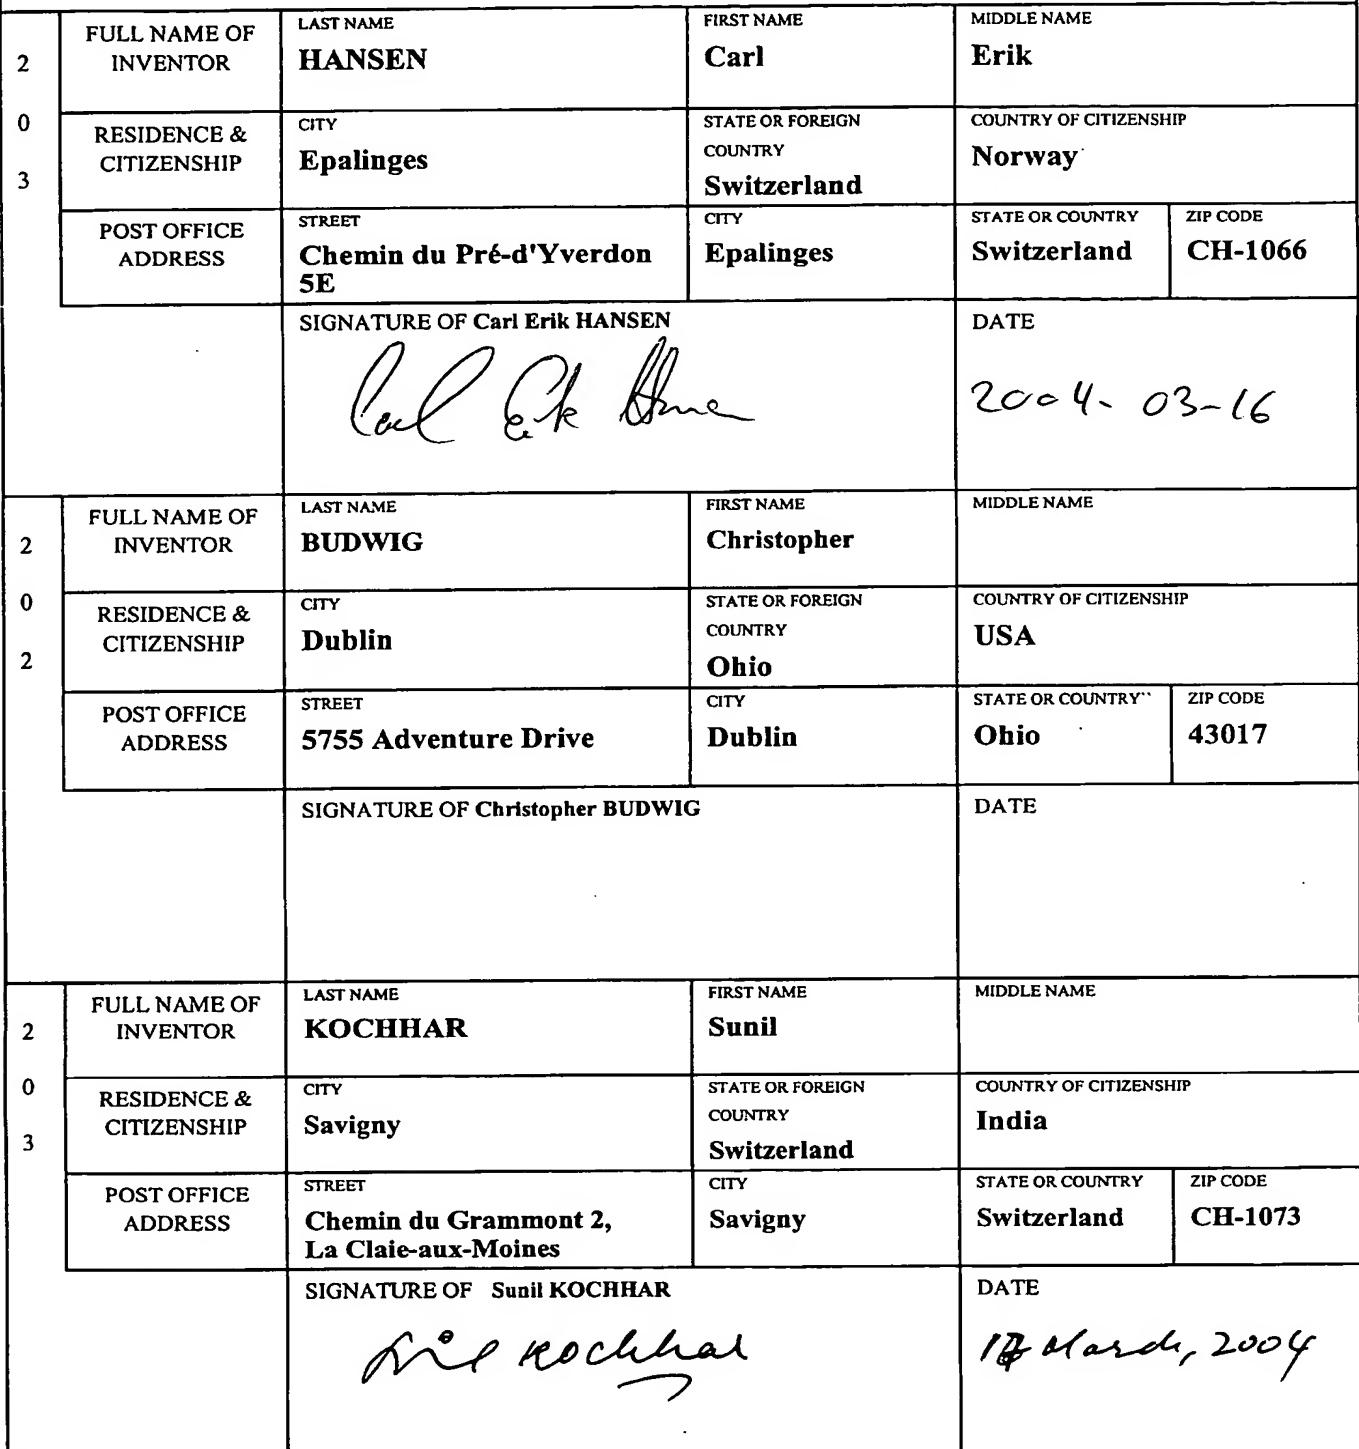 2
0
3
FULL NAME OF INVENTOR
LAST NAME
HANSEN
FIRST NAME
Carl
MIDDLE NAME
Erik
RESIDENCE & CITIZENSHIP
CITY
Epalinges
STATE OR FOREIGN COUNTRY
Switzerland
COUNTRY OF CITIZENSHIP
Norway
POST OFFICE ADDRESS
STREET
Chemin du Pré-d'Yverdon
5E
CITY
Epalinges
STATE OR COUNTRY
Switzerland
ZIP CODE
CH-1066
SIGNATURE OF Carl Erik HANSEN
Carl Erik Hansen
DATE
2004-03-16
2
0
2
FULL NAME OF INVENTOR
LAST NAME
BUDWIG
FIRST NAME
Christopher
MIDDLE NAME
RESIDENCE & CITIZENSHIP
CITY
Dublin
STATE OR FOREIGN COUNTRY
Ohio
COUNTRY OF CITIZENSHIP
USA
POST OFFICE ADDRESS
STREET
5755 Adventure Drive
CITY
Dublin
STATE OR COUNTRY
Ohio
ZIP CODE
43017
SIGNATURE OF Christopher BUDWIG
DATE
2
0
3
FULL NAME OF INVENTOR
LAST NAME
KOCHHAR
FIRST NAME
Sunil
MIDDLE NAME
RESIDENCE & CITIZENSHIP
CITY
Savigny
STATE OR FOREIGN COUNTRY
Switzerland
COUNTRY OF CITIZENSHIP
India
POST OFFICE ADDRESS
STREET
Chemin du Grammont 2,
La Claie-aux-Moines
CITY
Savigny
STATE OR COUNTRY
Switzerland
ZIP CODE
CH-1073
SIGNATURE OF Sunil KOCHHAR
Sunil Kochhar
DATE
March, 2004